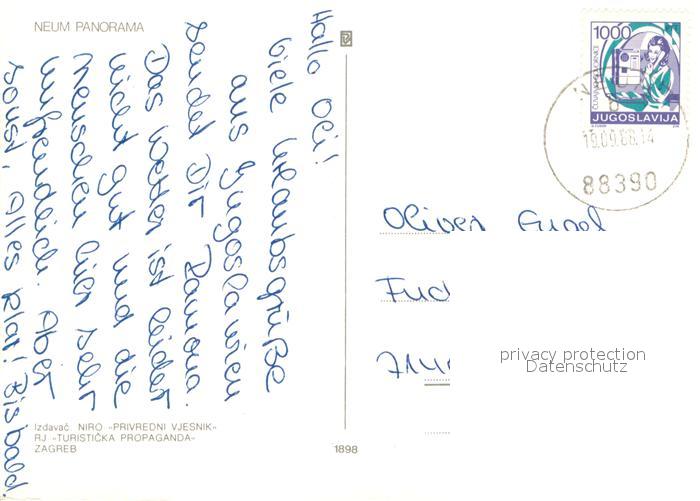 NEUM PANORAMA
Hallo Oli!
Viele Urlaubsgrüße
aus Jugoslawien
sendet Dir Ramona.
Das Wetter ist leider
nicht gut und die
Menschen hier sehr
unfreundlich. Aber
sonst, Alles klar! Bis bald.
Izdavač NIRO »PRIVREDNI VJESNIK«
RJ »TURISTIČKA PROPAGANDA«
ZAGREB
1898
1000
JUGOSLAVIJA
19.09.88.14
88390
Oliver
privacy protection
Datenschutz